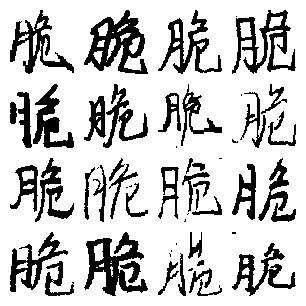 脆脆脆脆
脆脆脆脆
脆脆脆脆
脆脆脆脆